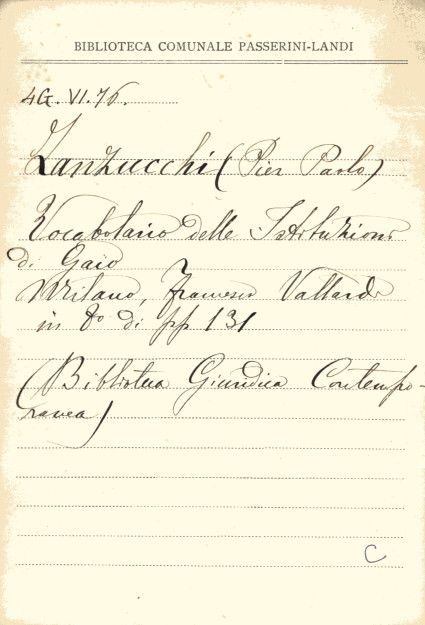 BIBLIOTECA COMUNALE PASSERINI-LANDI
4G. VI. 76.
Zanzucchi (Pier Paolo)
Vocabolario delle Istituzioni
di Gaio
Milano, Francesco Vallardi
in 8º di pp 131
(Biblioteca Giuridica Contempo-
ranea)
C